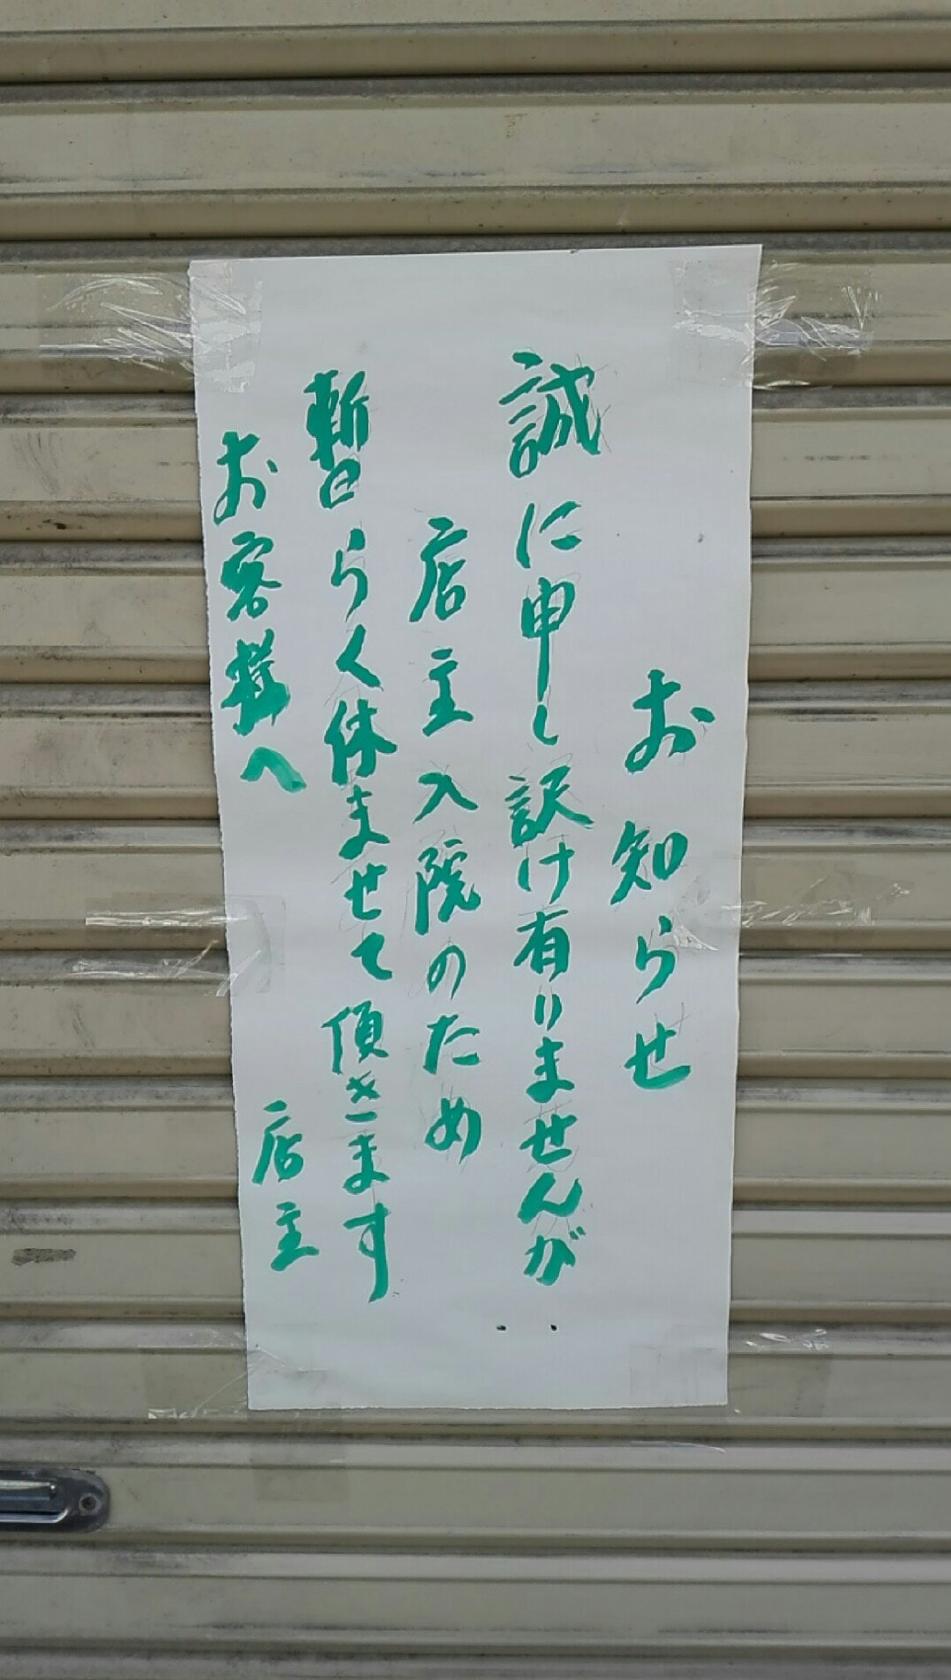 お知らせ
誠に申し訳け有りませんが
店主入院のため
暫らく休ませて頂きます
お客様へ
店主